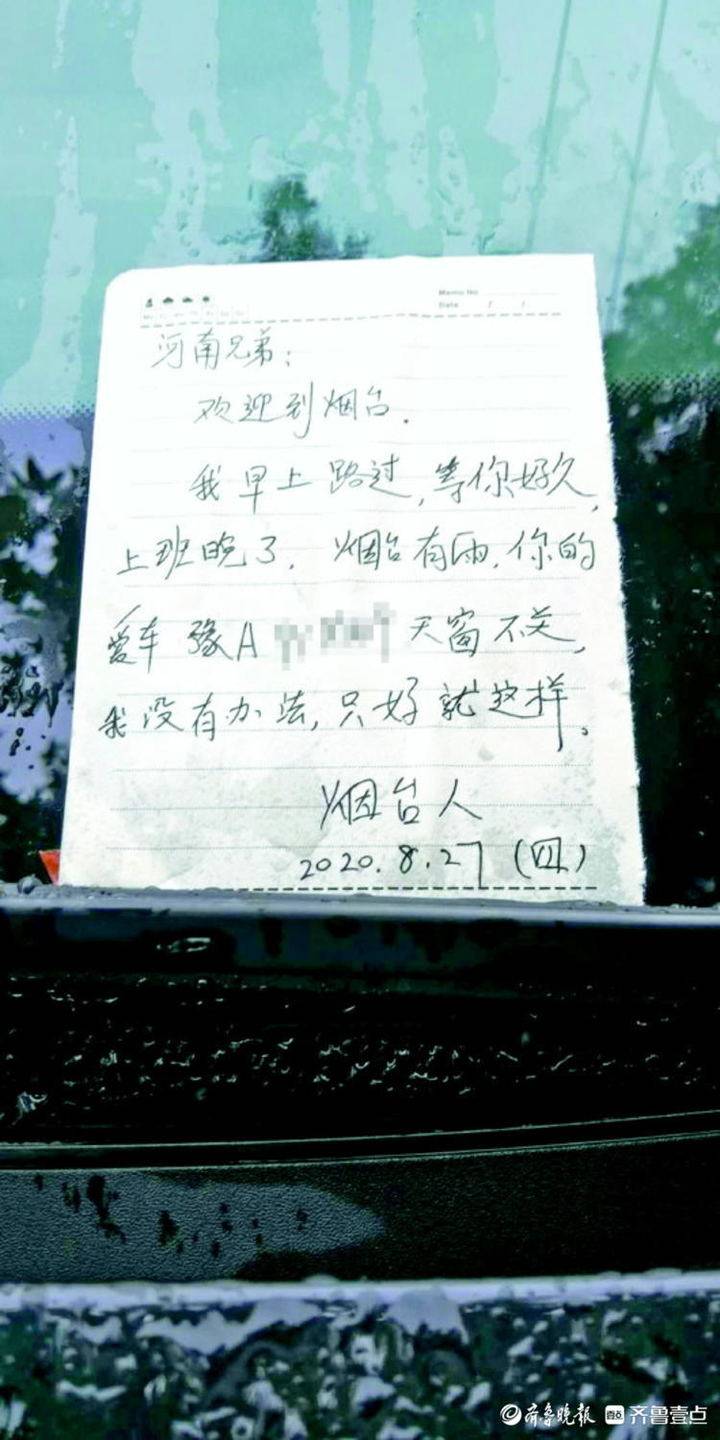 Memo No.
Date / /
河南兄弟：
欢迎到烟台.
我早上路过,等你好久,
上班晚了. 烟台有雨.你的
爱车 豫A 天窗不关,
我没有办法,只好就这样。
烟台人
2020.8.27 (四)
齐鲁晚报 齐鲁壹点